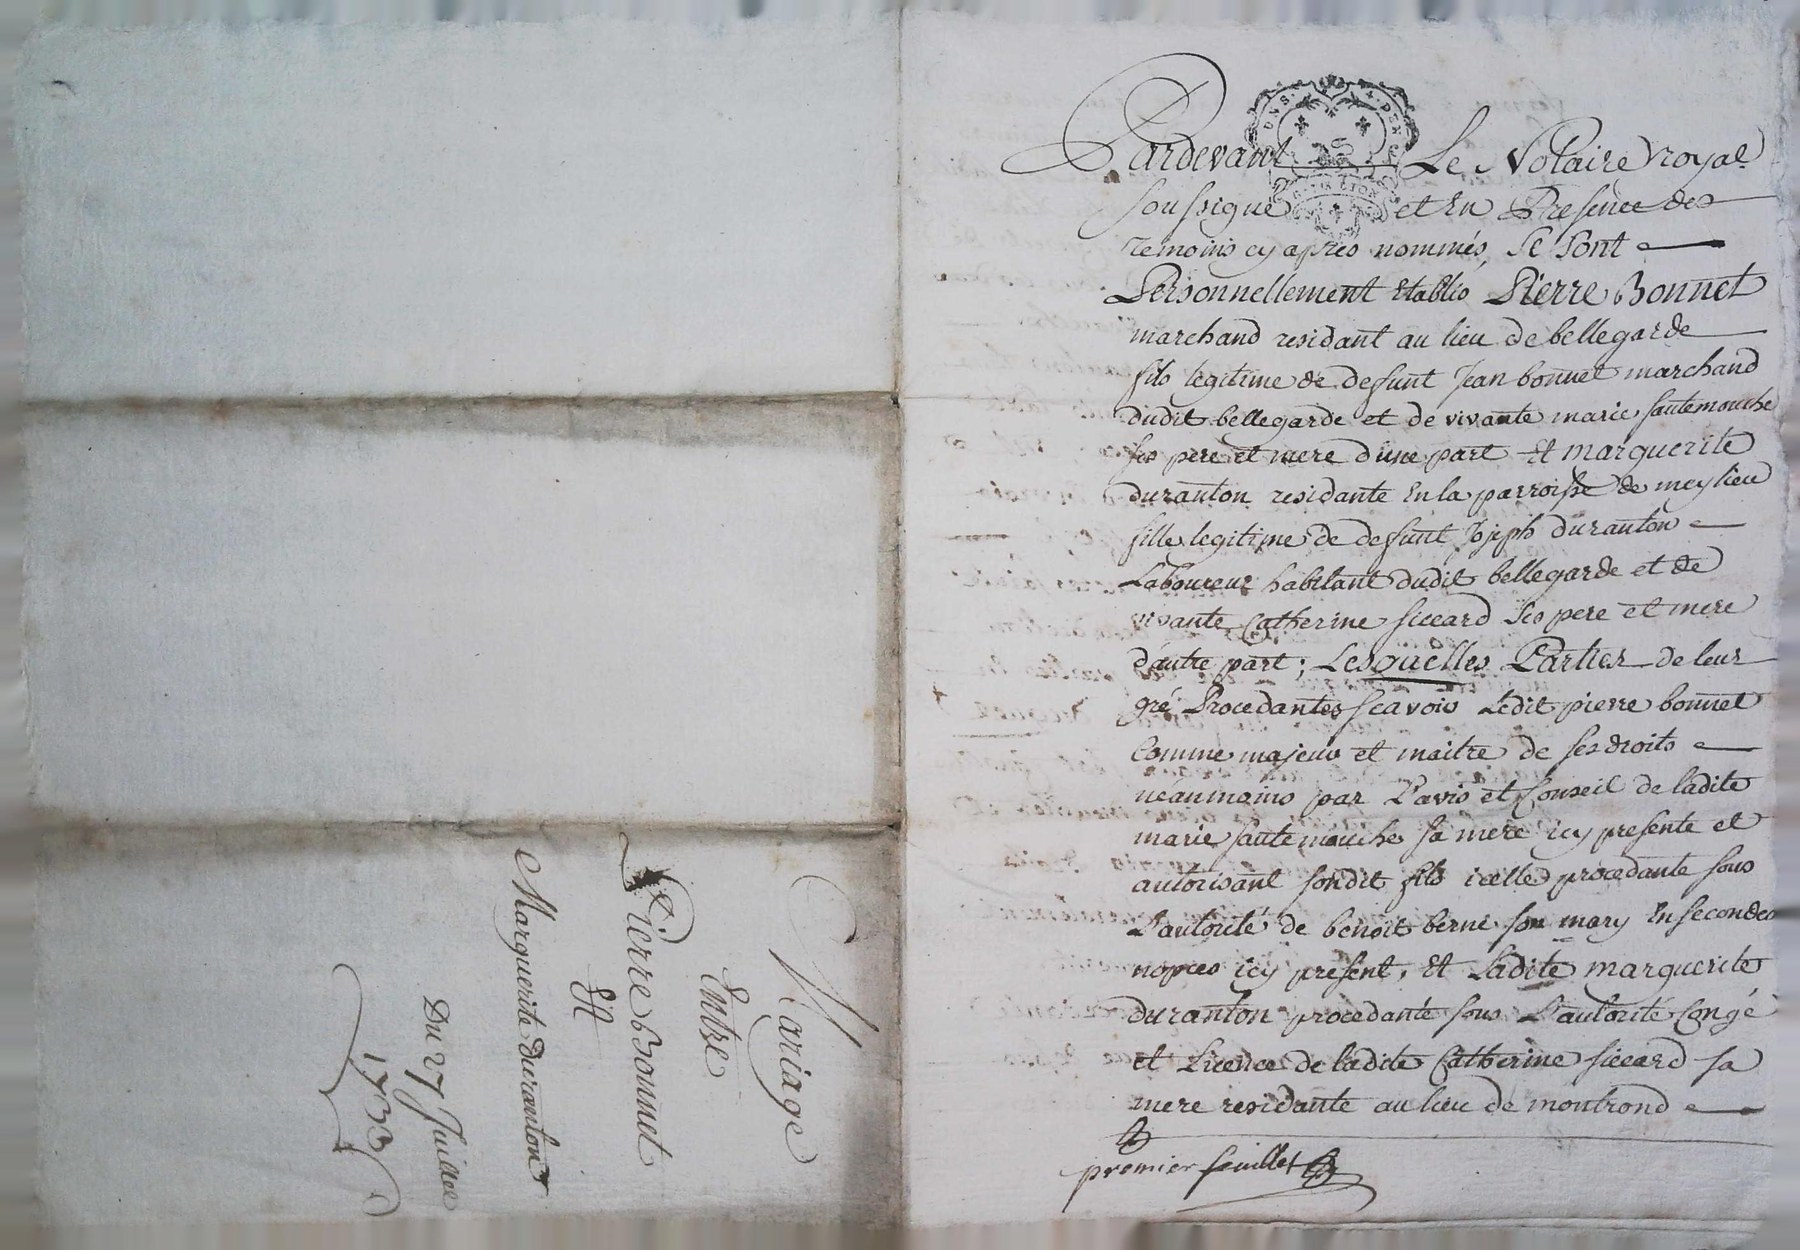 Mariage
Entre
Pierre Bonnet
Et
Marguerite Duranton
Du 27 Juillet
1733
Pardevant Le Notaire royal
soussigné et En Presence des
temoins cy apres nommés, se sont
Personnellement Etablis Pierre Bonnet
marchand residant au lieu de bellegarde
fils legitime de defunt Jean bonnet marchand
dudit bellegarde et de vivante marie sautemouche
ses pere et mere d'une part Et marguerite
duranton residante En la parroisse de meylieu
fille legitime de defunt Joseph duranton
Laboureur habitant dudit bellegarde et de
vivante Catherine siccard ses pere et mere
d'autre part; Lesquelles Parties de leur
gré Procedantes scavoir Ledit pierre bonnet
Comme majeur et maitre de ses droits
neanmoins par L'avis et Conseil de ladite
marie sautemouche sa mere icy presente et
autorisant sondit fils icelle procedante sous
L'autorité de benoit berne son mary En secondes
nopces icy present, Et Ladite marguerite
duranton procedante sous L'autorité Congé
et Licence de ladite Catherine siccard sa
mere residante au lieu de montrond
premier feuillet